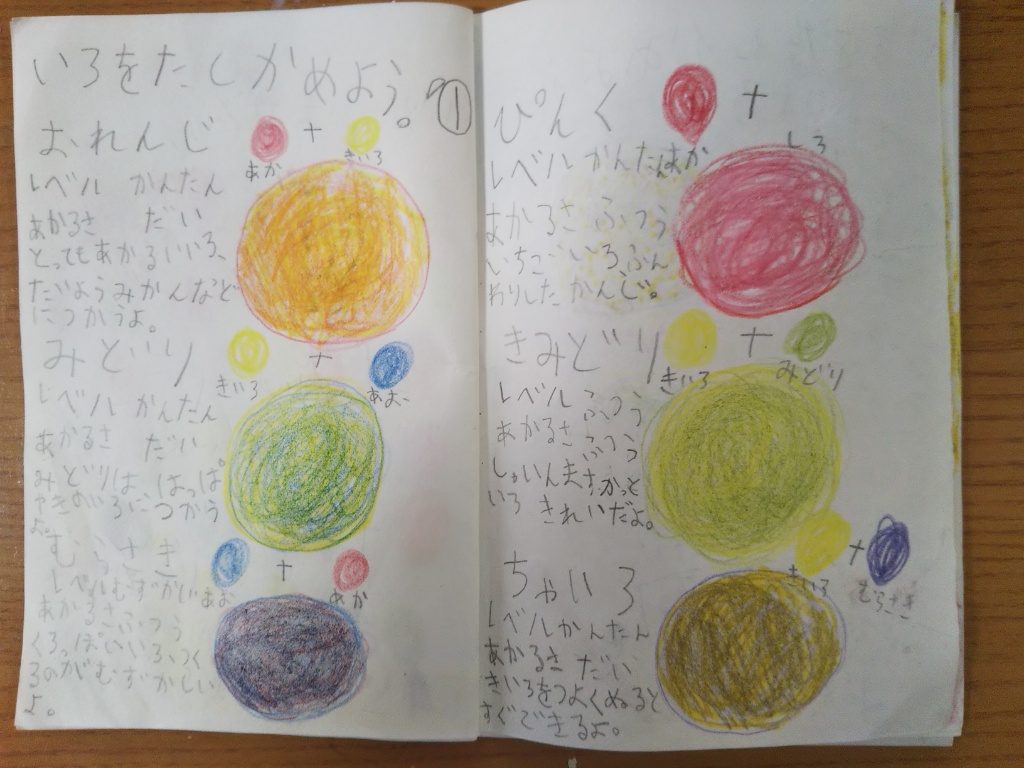 いろをたしかめよう。
①
おれんじ
+
あか
きいろ
レベル かんたん
あかるさ だい
とってもあかるいいろ、
たいようみかんなど
につかうよ。
みどり
+
きいろ
あお
レベル かんたん
あかるさ だい
みどりは はっぱ
やきのいろに つかう
よ。
むらさき
+
あお
あか
レベルむずかしい
あかるさふつう
くろっぽいいろ、つく
るのがむずかしい
よ。
ぴんく
+
あか
しろ
レベル かんたん
あかるさ ふつう
いちごいろふん
わりした かんじ。
きみどり
+
きいろ
みどり
レベル ふつう
あかるさ ふつう
しゃいんますかっと
いろ きれいだよ。
ちゃいろ
+
きいろ
むらさき
レベルかんたん
あかるさ だい
きいろをつよくぬると
すぐできるよ。